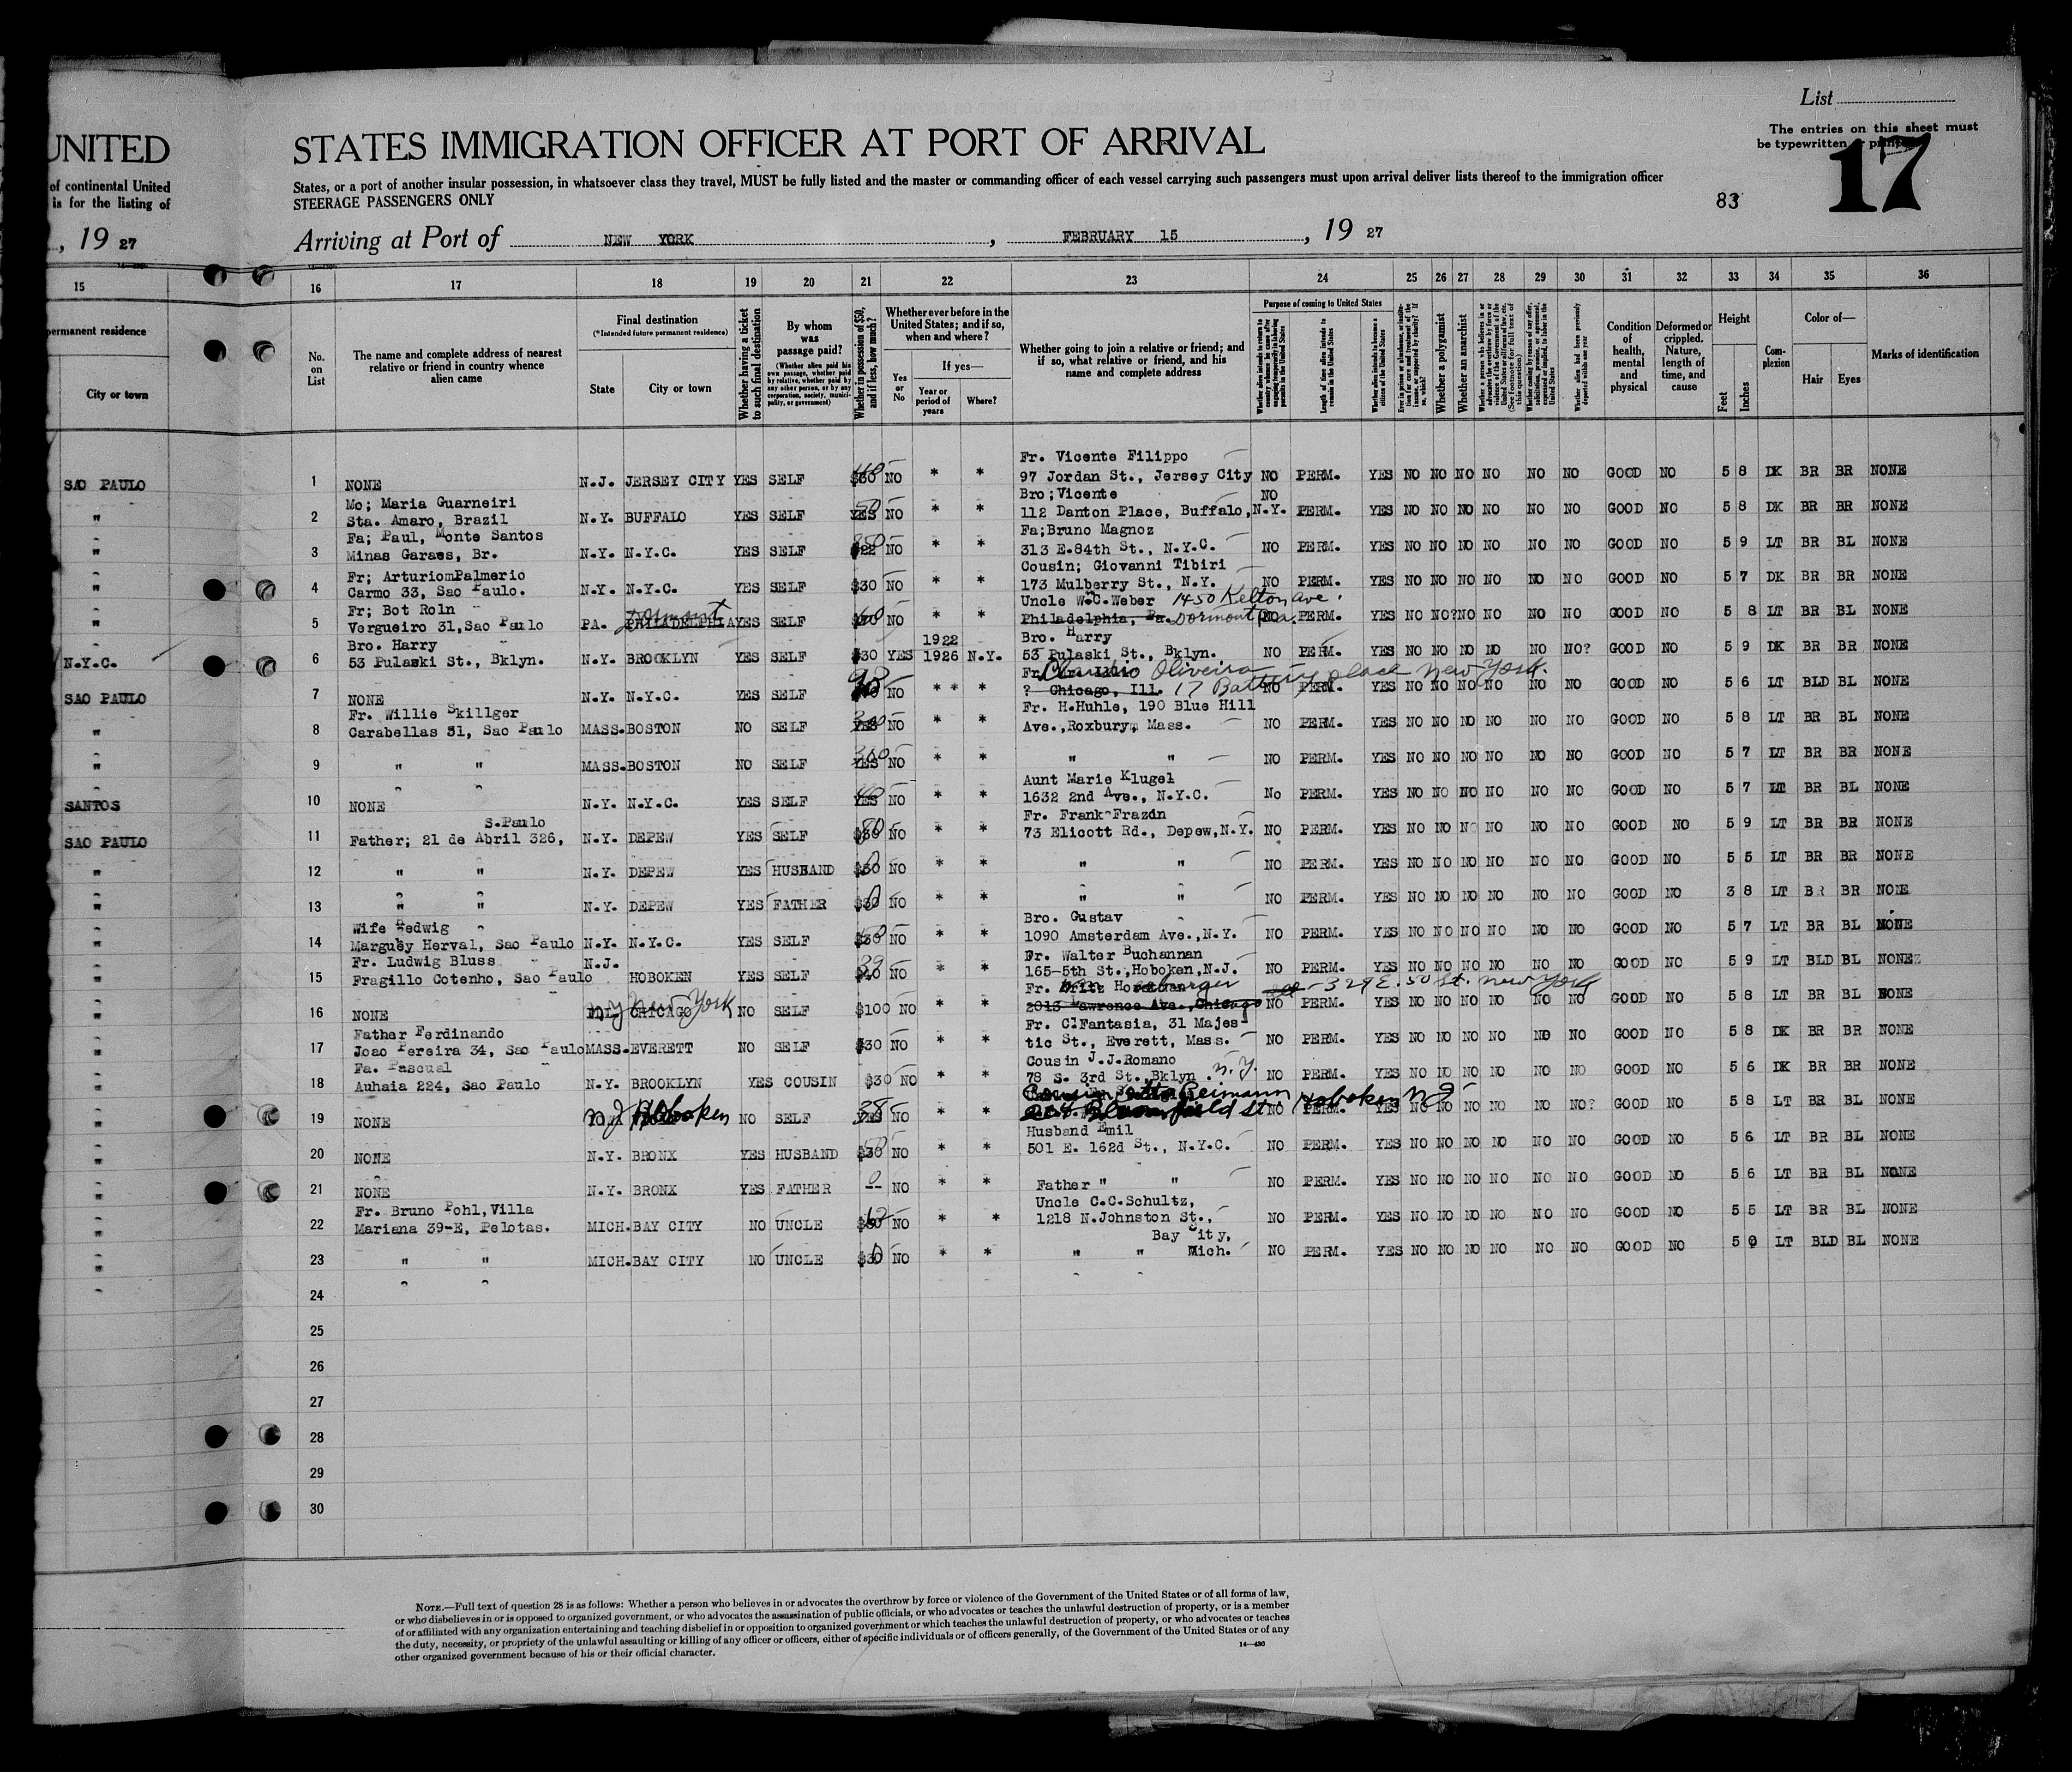 List
The entries on this sheet must
be typewritten or printed
17
83
UNITED
STATES IMMIGRATION OFFICER AT PORT OF ARRIVAL
of continental United
is for the listing of
States, or a port of another insular possession, in whatsoever class they travel, MUST be fully listed and the master or commanding officer of each vessel carrying such passengers must upon arrival deliver lists thereof to the immigration officer
STEERAGE PASSENGERS ONLY
, 19 27
Arriving at Port of NEW YORK , FEBRUARY 15 , 19 27
15 16 17 18 19 20 21 22 23 24 25 26 27 28 29 30 31 32 33 34 35 36
permanent residence
City or town
No. on List
The name and complete address of nearest relative or friend in country whence alien came
Final destination
(*Intended future permanent residence)
State
City or town
Whether having a ticket to such final destination
By whom was passage paid?
(Whether alien paid his own passage, whether paid by relative, whether paid by any other person, or by any corporation, society, municipality, or government)
Whether in possession of $50, and if less, how much?
Whether ever before in the United States; and if so, when and where?
Yes or No
If yes—
Year or period of years
Where?
Whether going to join a relative or friend; and if so, what relative or friend, and his name and complete address
Purpose of coming to United States
Length of time alien intends to remain in the United States
Whether alien intends to become a citizen of the United States
Whether a polygamist
Whether an anarchist
Condition of health, mental and physical
Deformed or crippled. Nature, length of time, and cause
Height
Feet
Inches
Complexion
Color of—
Hair
Eyes
Marks of identification
Fr. Vicente Filippo
SAO PAULO 1 NONE N.J. JERSEY CITY YES SELF $30 NO * * 97 Jordan St., Jersey City NO PERM. YES NO NO NO NO NO NO GOOD NO 5 8 DK BR BR NONE
Mo; Maria Guarneiri Bro; Vicente NO
" 2 Sta. Amaro, Brazil N.Y. BUFFALO YES SELF YES NO * * 112 Danton Place, Buffalo, N.Y. PERM. YES NO NO NO NO NO NO GOOD NO 5 8 DK BR BR NONE
Fa; Paul, Monte Santos Fa; Bruno Magnoz
" 3 Minas Garaes, Br. N.Y. N.Y.C. YES SELF $22 NO * * 313 E.84th St., N.Y.C. NO PERM. YES NO NO NO NO NO NO GOOD NO 5 9 LT BR BL NONE
Fr; ArturiomPalmerio Cousin; Giovanni Tibiri
" 4 Carmo 33, Sao Paulo. N.Y. N.Y.C. YES SELF $30 NO * * 173 Mulberry St., N.Y. NO PERM. YES NO NO NO NO NO NO GOOD NO 5 7 DK BR BR NONE
Fr; Bot Roln Dormont Uncle W.C.Weber 1450 Kelton ave.
" 5 Vergueiro 31, Sao Paulo PA. PHILADELPHIA YES SELF NO * * Philadelphia, Pa. Dormont Pa. NO PERM. YES NO NO? NO NO NO NO GOOD NO 5 8 LT BR BL NONE
Bro. Harry 1922 Bro. Harry
N.Y.C. 6 53 Pulaski St., Bklyn. N.Y. BROOKLYN YES SELF $30 YES 1926 N.Y. 53 Pulaski St., Bklyn. NO PERM. YES NO NO NO NO NO NO? GOOD NO 5 9 DK BR BL NONE
Oliveira
SAO PAULO 7 NONE N.Y. N.Y.C. YES SELF NO * * * ? Chicago, Ill. 17 Battery place New York. NO PERM. YES NO NO NO NO NO NO GOOD NO 5 6 LT BLD BL NONE
Fr. Willie Skillger Fr. H.Huhle, 190 Blue Hill
" 8 Carabellas 31, Sao Paulo MASS. BOSTON NO SELF YES NO * * Ave., Roxbury, Mass. NO PERM. YES NO NO NO NO NO NO GOOD NO 5 8 LT BR BL NONE
" 9 " " MASS. BOSTON NO SELF 300 YES NO * * " " NO PERM. YES NO NO NO NO NO NO GOOD NO 5 7 LT BR BR NONE
Aunt Marie Klugel
SANTOS 10 NONE N.Y. N.Y.C. YES SELF YES NO * * 1632 2nd Ave., N.Y.C. No PERM. YES NO NO NO NO NO NO GOOD NO 5 7 LT BR BL NONE
S.Paulo Fr. Frank Frazin
SAO PAULO 11 Father; 21 de Abril 326, N.Y. DEPEW YES SELF 80 $30 NO * * 73 Elicott Rd., Depew, N.Y. NO PERM. YES NO NO NO NO NO NO GOOD NO 5 9 LT BR BR NONE
" 12 " " N.Y. DEPEW YES HUSBAND 0 NO * * " " NO PERM. YES NO NO NO NO NO NO GOOD NO 5 5 LT BR BR NONE
" 13 " " N.Y. DEPEW YES FATHER 0 $30 NO * * " " NO PERM. YES NO NO NO NO NO NO GOOD NO 3 8 LT BR BR NONE
Wife Hedwig Bro. Gustav
" 14 Marguey Herval, Sao Paulo N.Y. N.Y.C. YES SELF $30 NO * * 1090 Amsterdam Ave., N.Y. NO PERM. YES NO NO NO NO NO NO GOOD NO 5 7 LT BR BL NONE
Fr. Ludwig Bluss N.J. Fr. Walter Buchannan
" 15 Fragillo Cotenho, Sao Paulo HOBOKEN YES SELF 39 NO * * 165-5th St., Hoboken, N.J. NO PERM. YES NO NO NO NO NO NO GOOD NO 5 9 LT BLD BL NONE
Fr. Fritz 329 E. 50 St. New York
" 16 NONE N.Y. New York CHICAGO NO SELF $100 NO * * 2013 Lawrence Ave., Chicago NO PERM. YES NO NO NO NO NO NO GOOD NO 5 8 LT BR BL NONE
Father Ferdinando Fr. C.Fantasia, 31 Majes-
" 17 Joao Pereira 34, Sao Paulo MASS. EVERETT NO SELF $30 NO * * tic St., Everett, Mass. NO PERM. YES NO NO NO NO NO NO GOOD NO 5 8 DK BR BR NONE
Fa. Pascual Cousin J.J.Romano
" 18 Auhaia 224, Sao Paulo N.Y. BROOKLYN YES COUSIN $30 NO * * 78 S. 3rd St., Bklyn. N.Y. NO PERM. YES NO NO NO NO NO NO GOOD NO 5 6 DK BR BR NONE
Cousin Otto Reimann
" 19 NONE N J Hoboken NO SELF 38 YES NO * * 204 Bloomfield St. Hoboken N J NO PERM. YES NO NO NO NO NO NO? GOOD NO 5 8 LT BR BL NONE
Husband Emil
" 20 NONE N.Y. BRONX YES HUSBAND $30 NO * * 501 E. 162d St., N.Y.C. NO PERM. YES NO NO NO NO NO NO GOOD NO 5 6 LT BR BL NONE
" 21 NONE N.Y. BRONX YES FATHER 0 -- NO * * Father " " NO PERM. YES NO NO NO NO NO NO GOOD NO 5 6 LT BR BL NONE
Fr. Bruno Pohl, Villa Uncle C.C.Schultz,
" 22 Mariana 39-E, Pelotas. MICH. BAY CITY NO UNCLE 12 NO * * 1218 N.Johnston St., NO PERM. YES NO NO NO NO NO NO GOOD NO 5 5 LT BR BL NONE
Bay City,
" 23 " " MICH. BAY CITY NO UNCLE 0 $30 NO * * " " Mich. NO PERM. YES NO NO NO NO NO NO GOOD NO 5 9 LT BLD BL NONE
24
25
26
27
28
29
30
NOTE.—Full text of question 28 is as follows: Whether a person who believes in or advocates the overthrow by force or violence of the Government of the United States or of all forms of law,
or who disbelieves in or is opposed to organized government, or who advocates the assassination of public officials, or who advocates or teaches the unlawful destruction of property, or is a member
of or affiliated with any organization entertaining and teaching disbelief in or opposition to organized government or which teaches the unlawful destruction of property, or who advocates or teaches
the duty, necessity, or propriety of the unlawful assaulting or killing of any officer or officers, either of specific individuals or of officers generally, of the Government of the United States or of any
other organized government because of his or their official character.
14—430